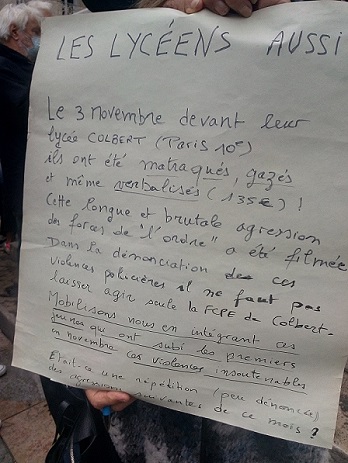 LES LYCÉENS AUSSI
Le 3 novembre devant leur
lycée COLBERT (Paris 10e)
ils ont été matraqués, gazés
et même verbalisés (135€) !
Cette longue et brutale agression
des forces de "l'ordre" a été filmée
Dans la dénonciation de ces
violences policières il ne faut pas
laisser agir seule la FCPE de Colbert.
Mobilisons nous en intégrant ces
jeunes qui ont subi des premiers
en novembre ces violences insoutenables
Était-ce une répétition (peu dénoncée)
des agressions suivantes de ce mois ?